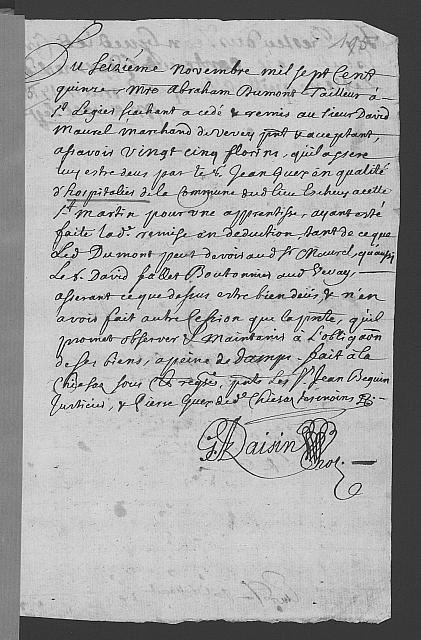 Du seizieme novembre mil sept Cent
quinze, Mre Abraham Dumont Tailleur à
St Legier sachant a cedé & remis au sieur David
Maurel marchand de Vevey pnt & acceptant,
assavoir vingt cinq florins, quil assere
luy estre deus par le Sr Jean Quex en qualité
d'hospitalier de la Commune dud lieu
St Martin pour une apprentisse, ayant esté
faite lade remise en deduction tant de ce que
Led Dumont peut devoir aud Sr Maurel, quaussi
Le Sr David fallet Boutonnier aud Vevay,
asserant ce que dessus estre bien deü, & n'en
avoir fait autre Cession que la pnte, quil
promet observer & Maintenir à L'obligaon
de ses biens, a peine de damps. fait à la
Chiesaz sous pnts Les Sr Jean Beguin
Justicier, & Pierre Quex de d. Chiesaz tesmoins
G. Daisin
not.